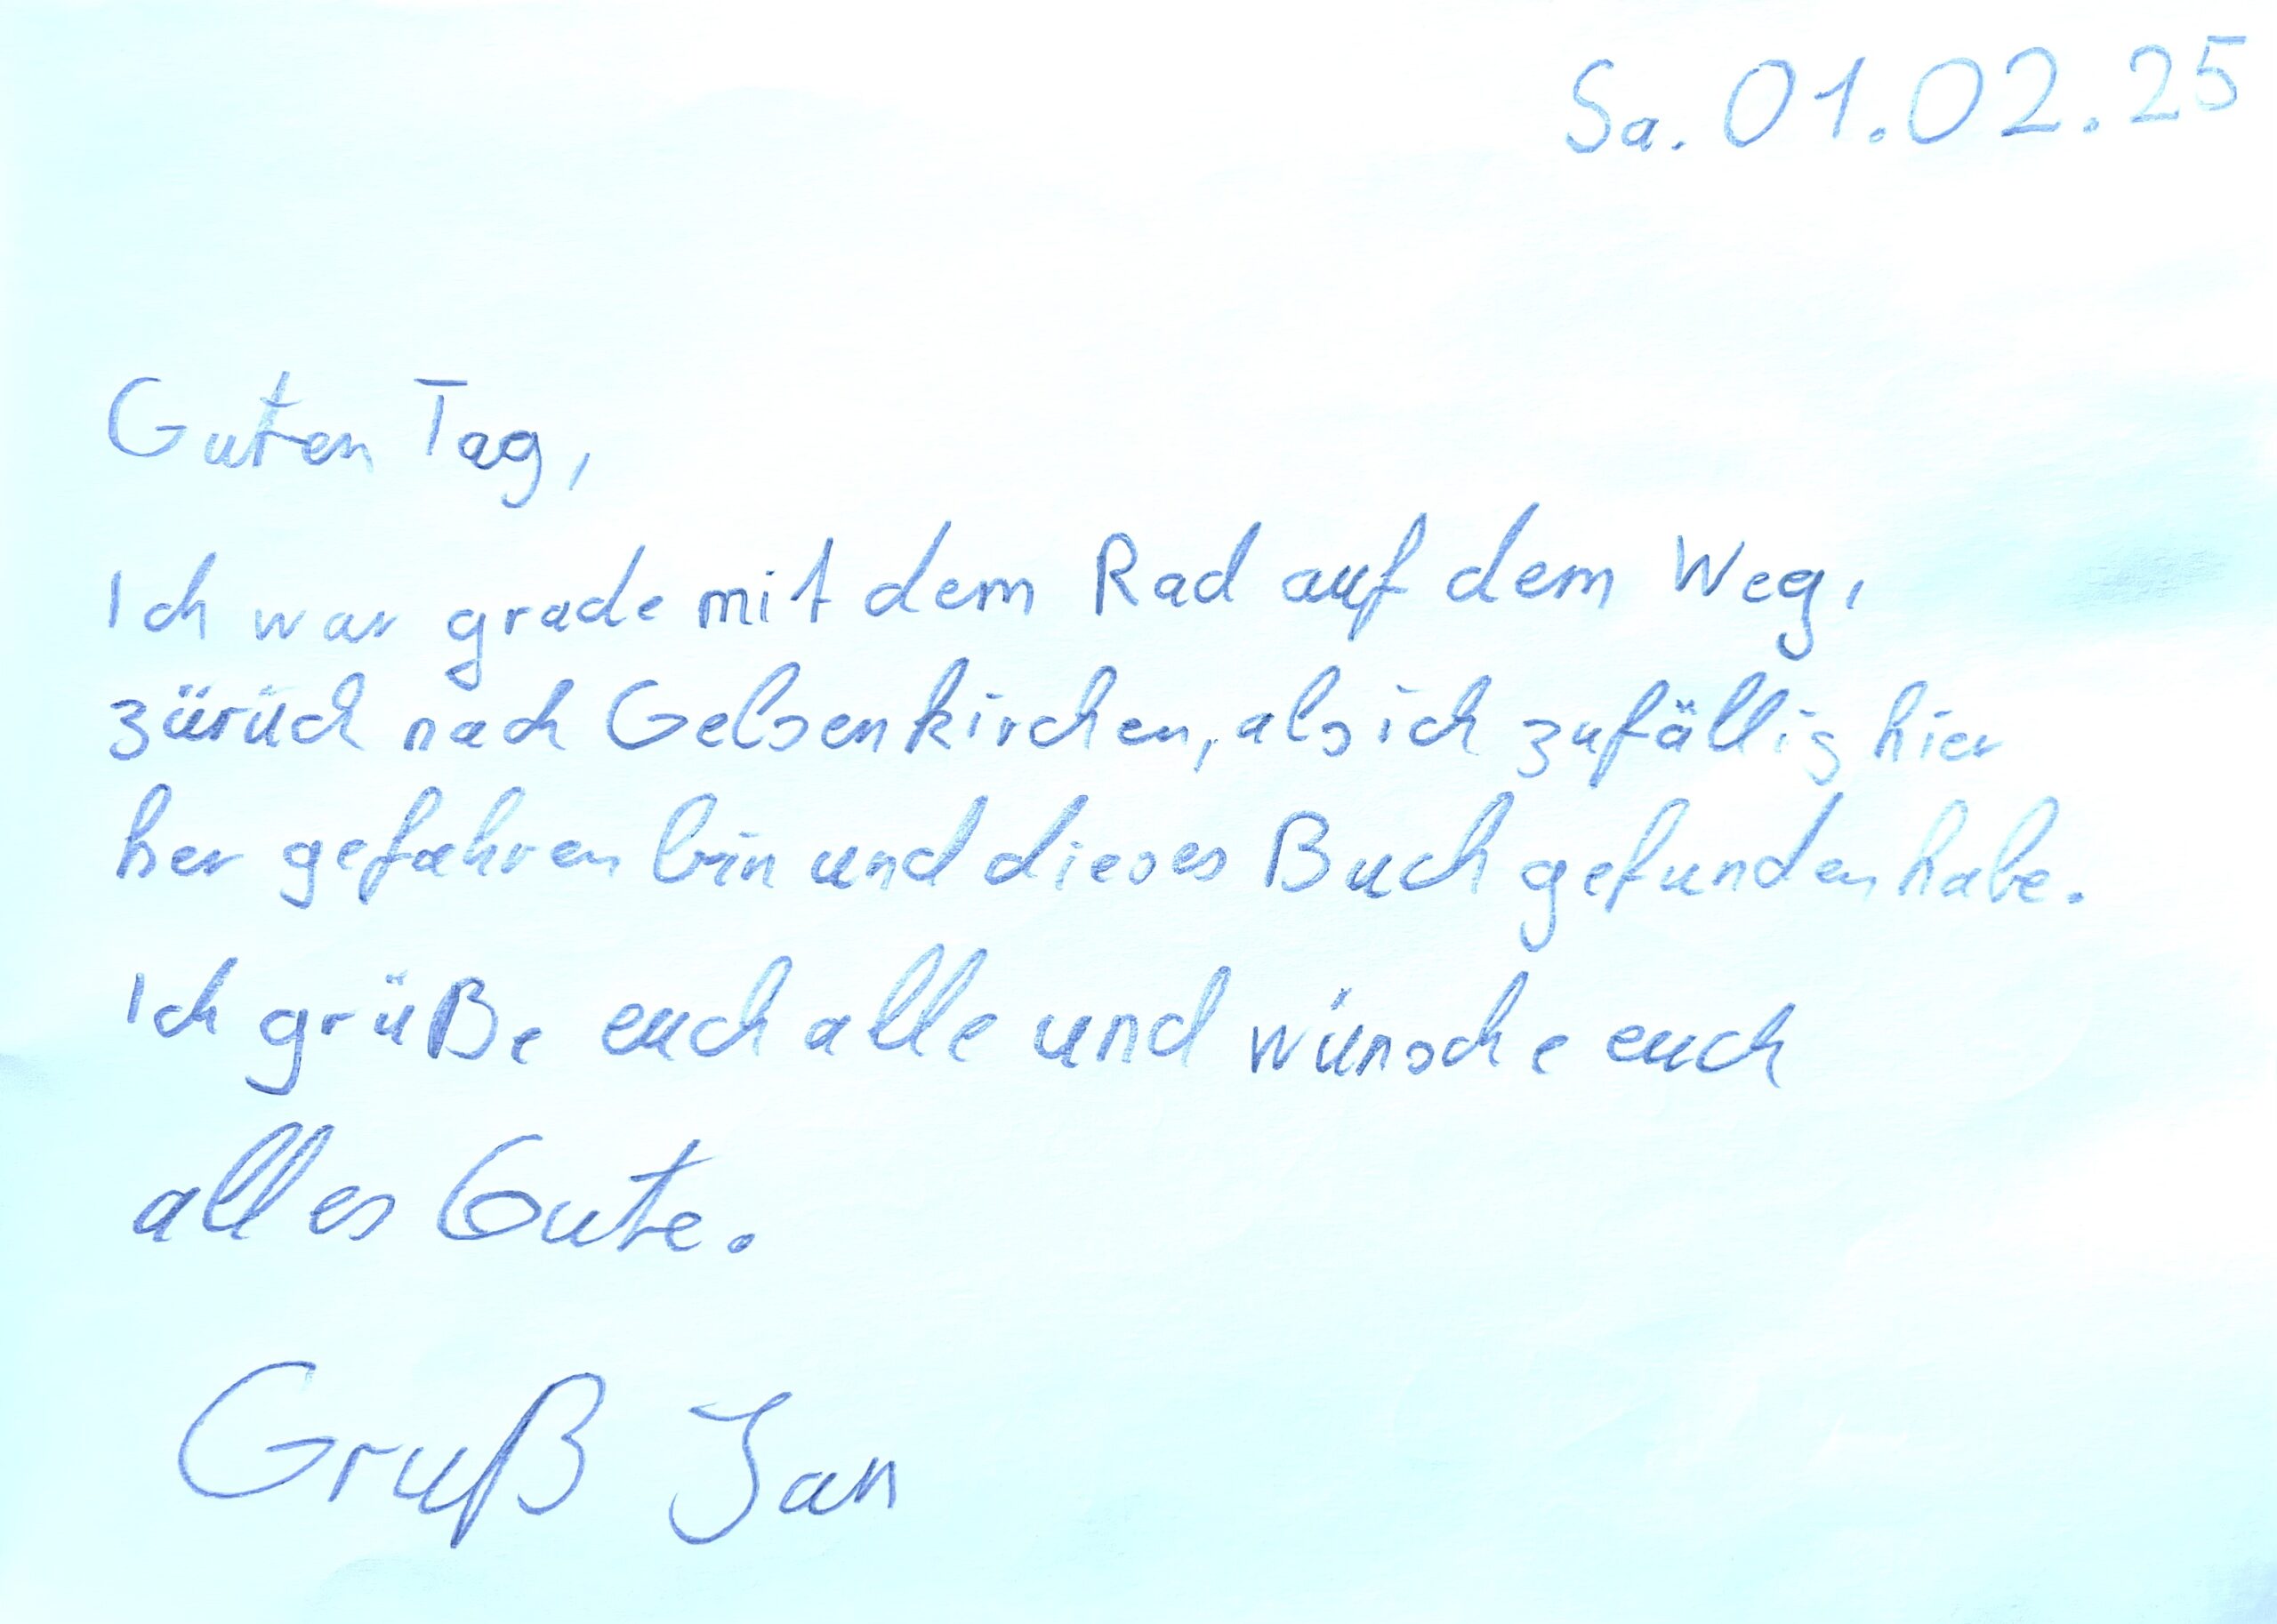 Sa. 01.02.25
Guten Tag,
Ich war grade mit dem Rad auf dem Weg,
zürück nach Gelsenkirchen, als ich zufällig hier
her gefahren bin und dieses Buch gefunden habe.
Ich grüße euch alle und wünsche euch
alles Gute.
Gruß Jan